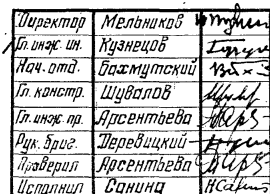 Директор Мельников
Гл. инж. ин. Кузнецов
Нач. отд. Бахмутский
Гл. констр. Шувалов
Гл. инж. пр. Арсентьева
Рук. бриг. Деревицкий
Проверил Арсентьева
Исполнил Санина